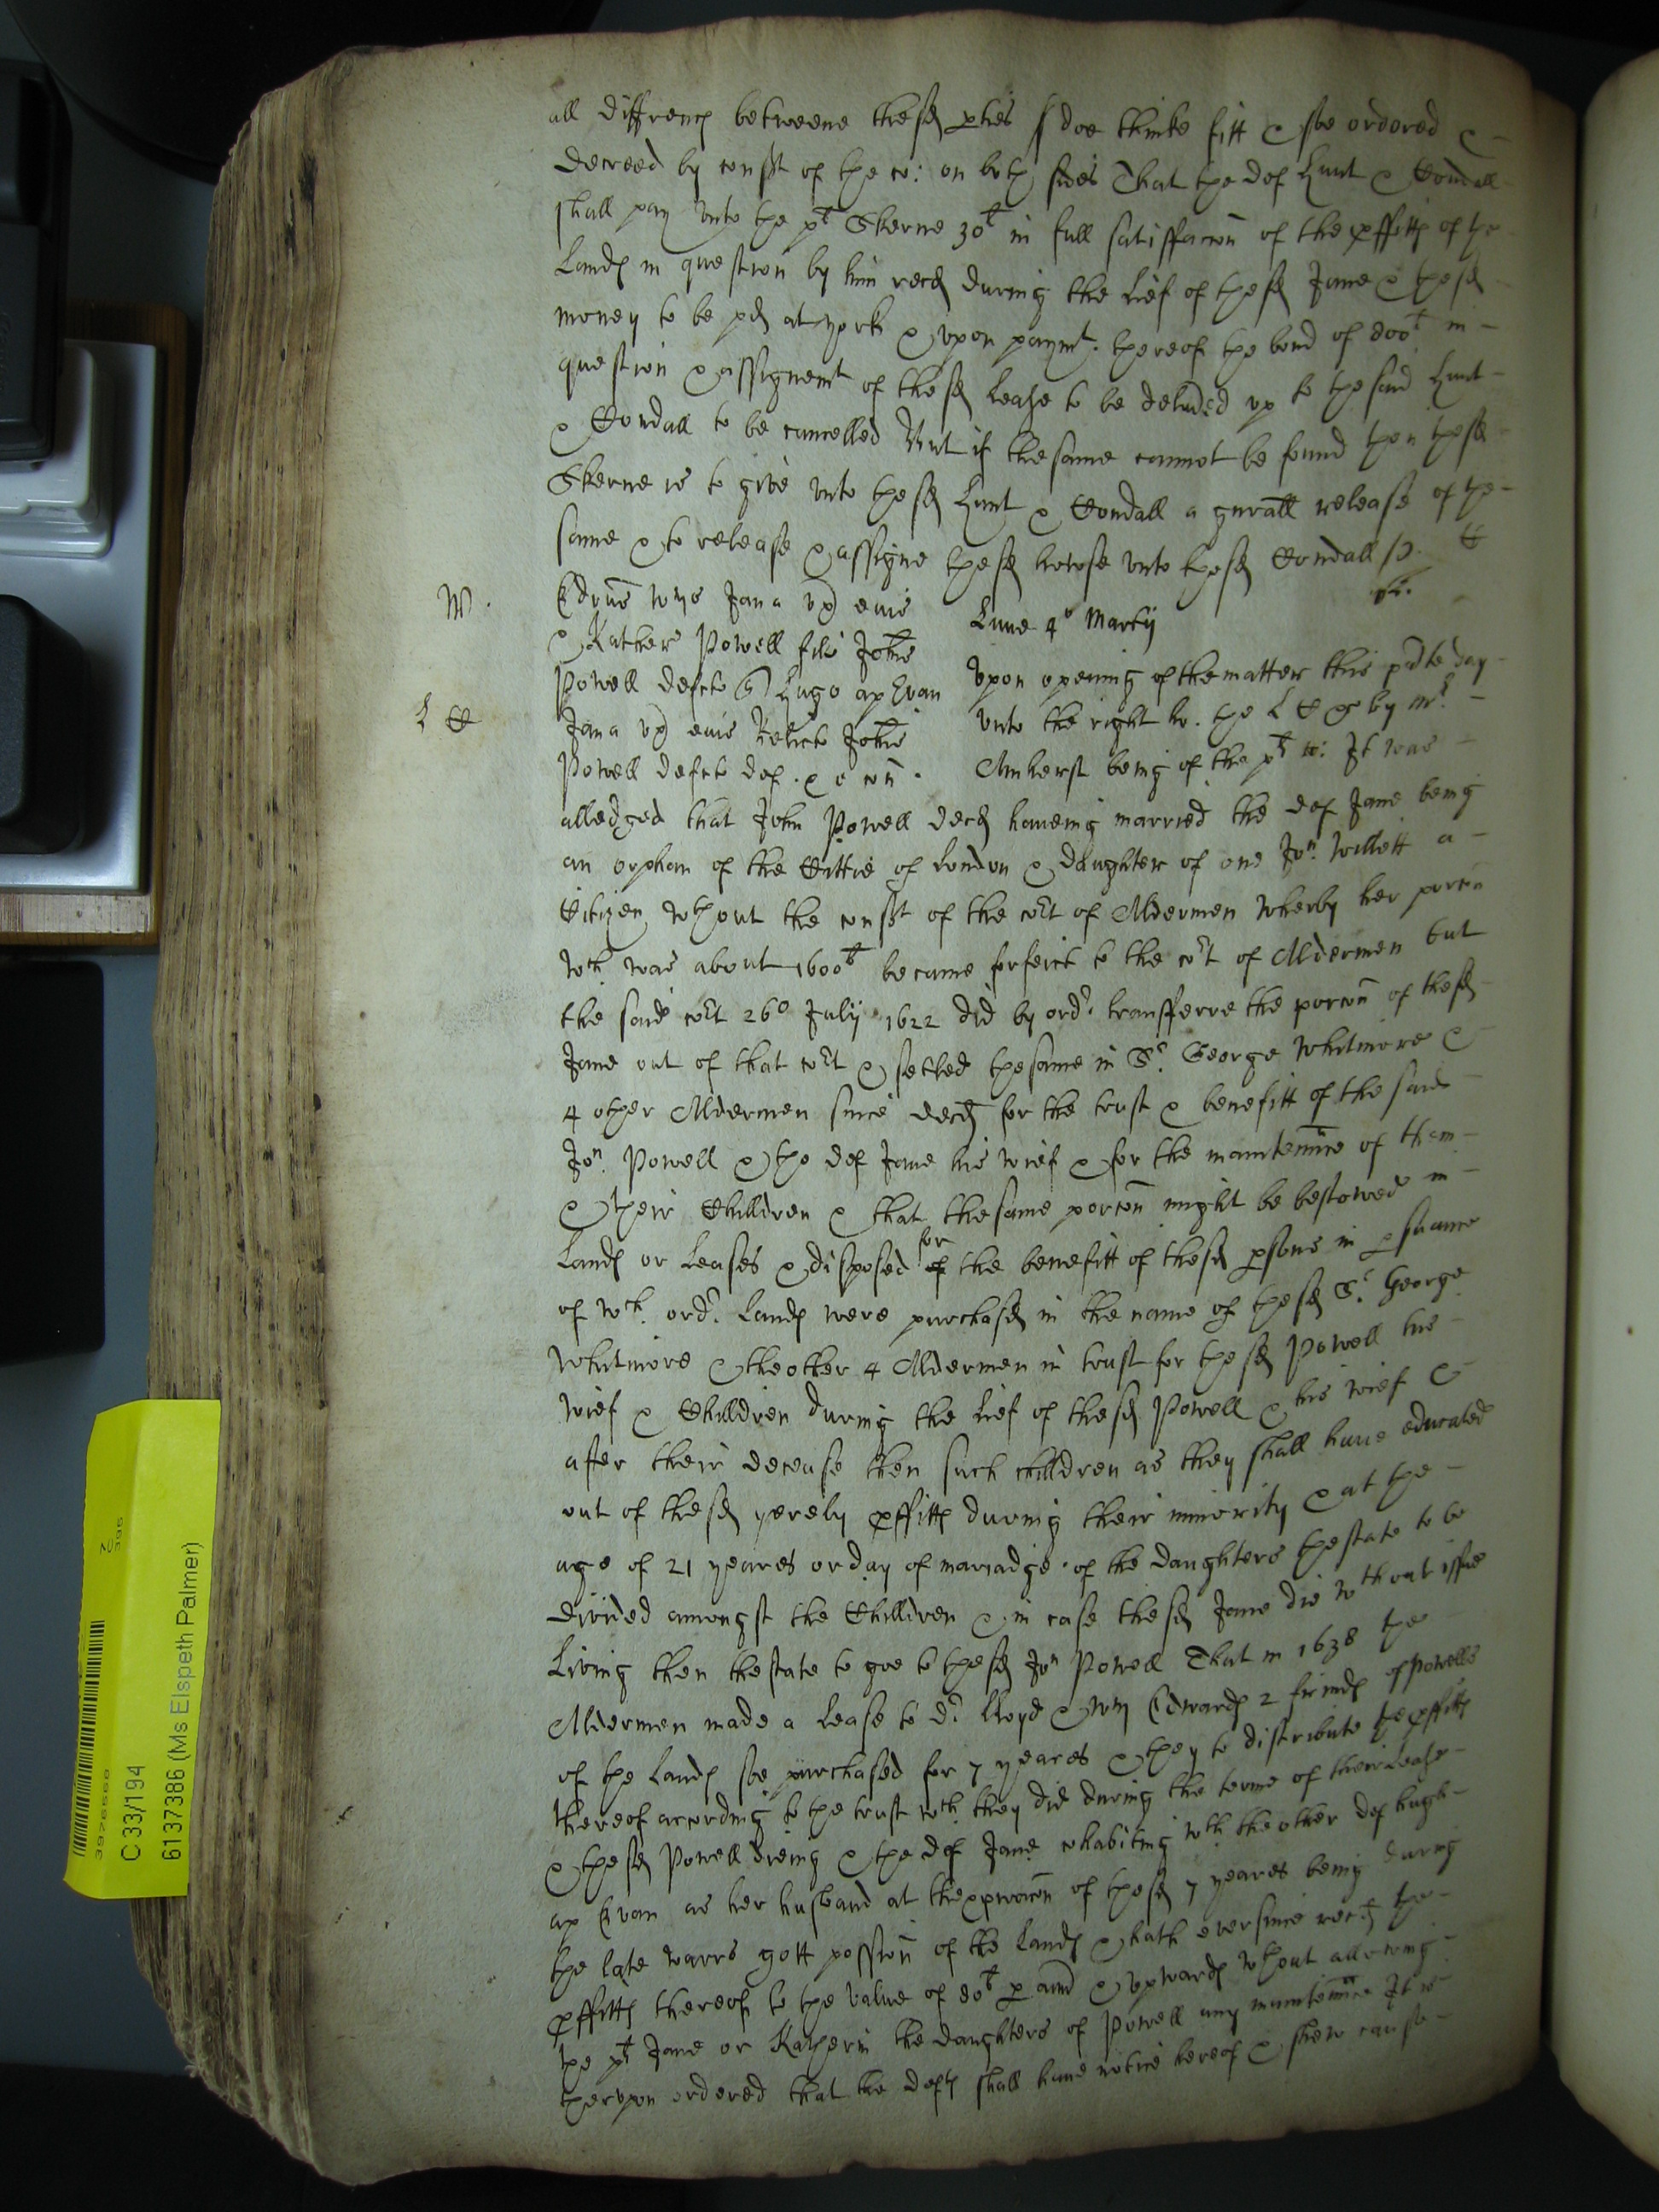 all diffrenc betweene thesd pties I doe thinke fitt & soe ordered &
decreed by consst of the co: on both sides That the def Hunt & Condall
shall pay unto the plt Skerne 30l in full satisfaccon of the pffitts of the
Lands in question by him recd during the lief of thesd Jane & thesd
money to be pd at york & upon paymt. thereof the bond of 400l in
question & assignemt of thesd lease to be delivd up to the said Hunt
& Condall to be cancelled But if the same cannot be found then thesd
Skerne is to give unto thesd Hunt & Condall a gnrall release of the
same & to release & assigne thesd howse unto thesd Condall
W.
Edrus Jana ux eius
& Kather Powell fil Johis
Powell defcto Hugo ap Evan
L C
Jana ux eius Relicto Johis
Powell defcto def. & e con.
Lune 4o Martij
Upon opening of the matter this pnte day
unto the right ho. the L C by Mr
Amherst being of the plt co: It was
alledged that John Powell decd haveing married the def Jane being
an orphan of the Cittie of London & daughter of one Jon. Willett a
Citizen wthout the consst of the cort of Aldermen wherby her porcon
wch. was about 1600l became forfeict to the cort of Aldermen but
the said cort 26o July 1622 did by ordr transferre the porcon of thesd
Jane out of that cort & setled the same in Sr. George Whitmore &
4 other Aldermen since decd for the trust & benefitt of the said
Jon. Powell & the def Jane his wief & for the maintennce of them
& their Chilldren & that the same porcon might be bestowed in
Lands or Leases & disposed for of the benefitt of thesd psons in psuance
of wch. ordr. Lands were purchased in the name of thesd Sr. George
Whitmore & the other 4 Aldermen in trust for thesd Powell his
wief & Chilldren during the lief of thesd Powell & his wief &
after their decease then such chilldren as they shall have educated
out of thesd yerely pffitts during their minority & at the
age of 21 yeares or day of mariadge of the daughters thestate to be
divided amongst the Chilldren & in case thesd Jane die wthout issue
Living then thestate to goe to thesd Jon Powell That in 1638 the
Aldermen made a Lease to Dr. lloyd & Wm Edwards 2 friends of Powells
of the Lands soe purchased for 7 yeares & they to distribute the pffitts
thereof according to the trust wch. they did during the terme of their Lease
& thesd Powell dieing & the def Jane cohabiting wth. the other def hugh
ap Evan as her husband at thexpiracon of thesd 7 yeares being during
the late warrs gott possion of the Lands & hath ever since recd the
pffitts thereof to the value of 80l p ann & upwards wthout allowing
the plt Jane or Katherin the daughters of Powell any maintennce It is
therupon ordered that the defts shall have notice hereof & shew cause
C 33/194
6137386 (Ms Elspeth Palmer)